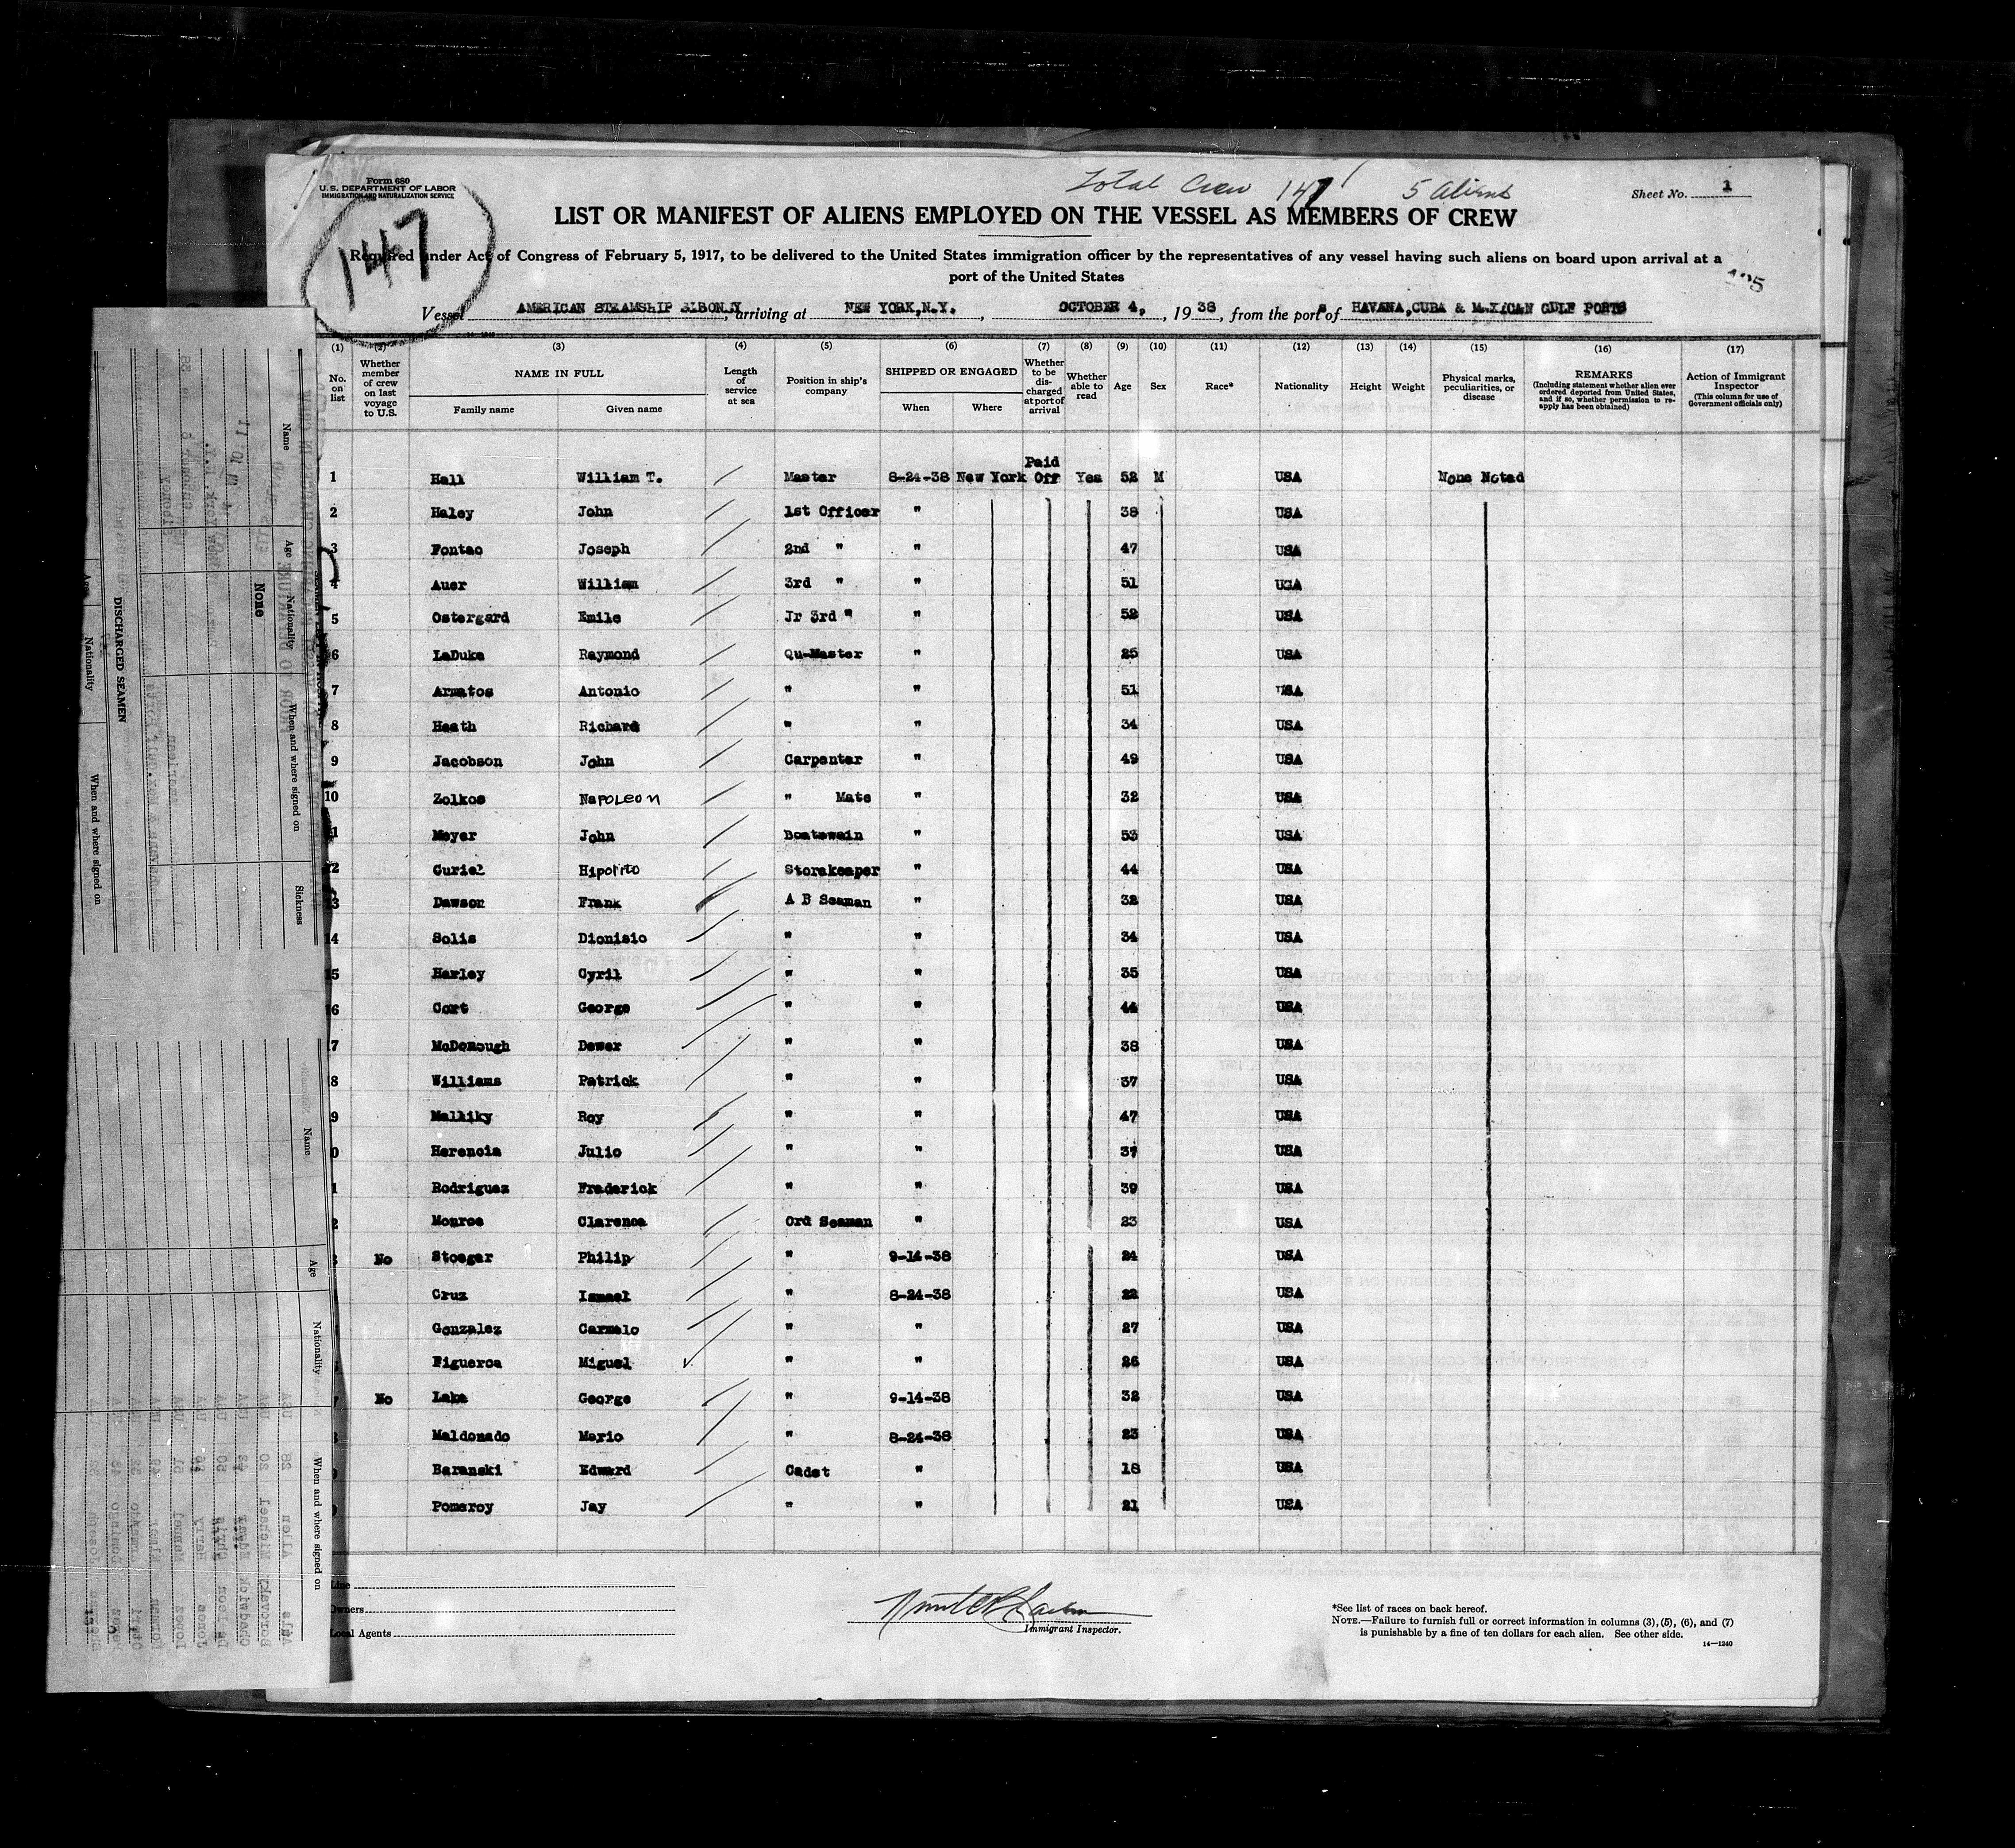 Form 680
U.S. DEPARTMENT OF LABOR
IMMIGRATION AND NATURALIZATION SERVICE
147
Total Crew 147 5 Aliens
Sheet No. 1
LIST OR MANIFEST OF ALIENS EMPLOYED ON THE VESSEL AS MEMBERS OF CREW
Required under Act of Congress of February 5, 1917, to be delivered to the United States immigration officer by the representatives of any vessel having such aliens on board upon arrival at a
port of the United States
Vessel AMERICAN STEAMSHIP, arriving at NEW YORK,N.Y., OCTOBER 4, 1938, from the ports of HAVANA,CUBA & MEXICAN GULF PORTS
(1) (2) (3) (4) (5) (6) (7) (8) (9) (10) (11) (12) (13) (14) (15) (16) (17)
No. on list
Whether member of crew on last voyage to U.S.
NAME IN FULL
Family name Given name
Length of service at sea
Position in ship's company
SHIPPED OR ENGAGED
When Where
Whether to be discharged at port of arrival
Whether able to read
Age Sex Race* Nationality Height Weight
Physical marks, peculiarities, or disease
REMARKS
(Including statement whether alien ever ordered deported from United States, and if so, whether permission to re-apply has been obtained)
Action of Immigrant Inspector
(This column for use of Government officials only)
1 Hall William T. Master 8-24-38 New York Paid Off Yes 52 M USA None Noted
2 Haley John 1st Officer " 38 USA
3 Fontao Joseph 2nd " " 47 USA
4 Auer William 3rd " " 51 USA
5 Ostergard Emile Jr 3rd " " 52 USA
6 LaDuke Raymond Qu-Master " 25 USA
7 Armatos Antonio " " 51 USA
8 Heath Richard " " 34 USA
9 Jacobson John Carpenter " 49 USA
10 Zolkos Napoleon " Mate " 32 USA
1 Meyer John Boatswain " 53 USA
2 Curiel Hipolito Storekeeper " 44 USA
3 Dawson Frank A B Seaman " 32 USA
14 Solis Dionisio " " 34 USA
5 Harley Cyril " " 35 USA
6 Cort George " " 44 USA
7 McDonough Dewer " " 38 USA
8 Williams Patrick " " 37 USA
9 Malliky Roy " " 47 USA
0 Herencia Julio " " 37 USA
1 Rodriguez Frederick " " 39 USA
2 Monroe Clarence Ord Seaman " 23 USA
No Stoegar Philip " 9-14-38 24 USA
Cruz Ismael " 8-24-38 22 USA
Gonzalez Carmelo " " 27 USA
Figueroa Miguel " " 26 USA
No Lake George " 9-14-38 32 USA
Maldonado Mario " 8-24-38 23 USA
Baranski Edward Cadet " 18 USA
Pomeroy Jay " " 21 USA
Line
Owners
Local Agents
Immigrant Inspector.
*See list of races on back hereof.
NOTE.—Failure to furnish full or correct information in columns (3), (5), (6), and (7)
is punishable by a fine of ten dollars for each alien. See other side.
14—1240
Name Age Nationality When and where signed on Sickness
None
DISCHARGED SEAMEN
Age Nationality When and where signed on
Name Age Nationality When and where signed on